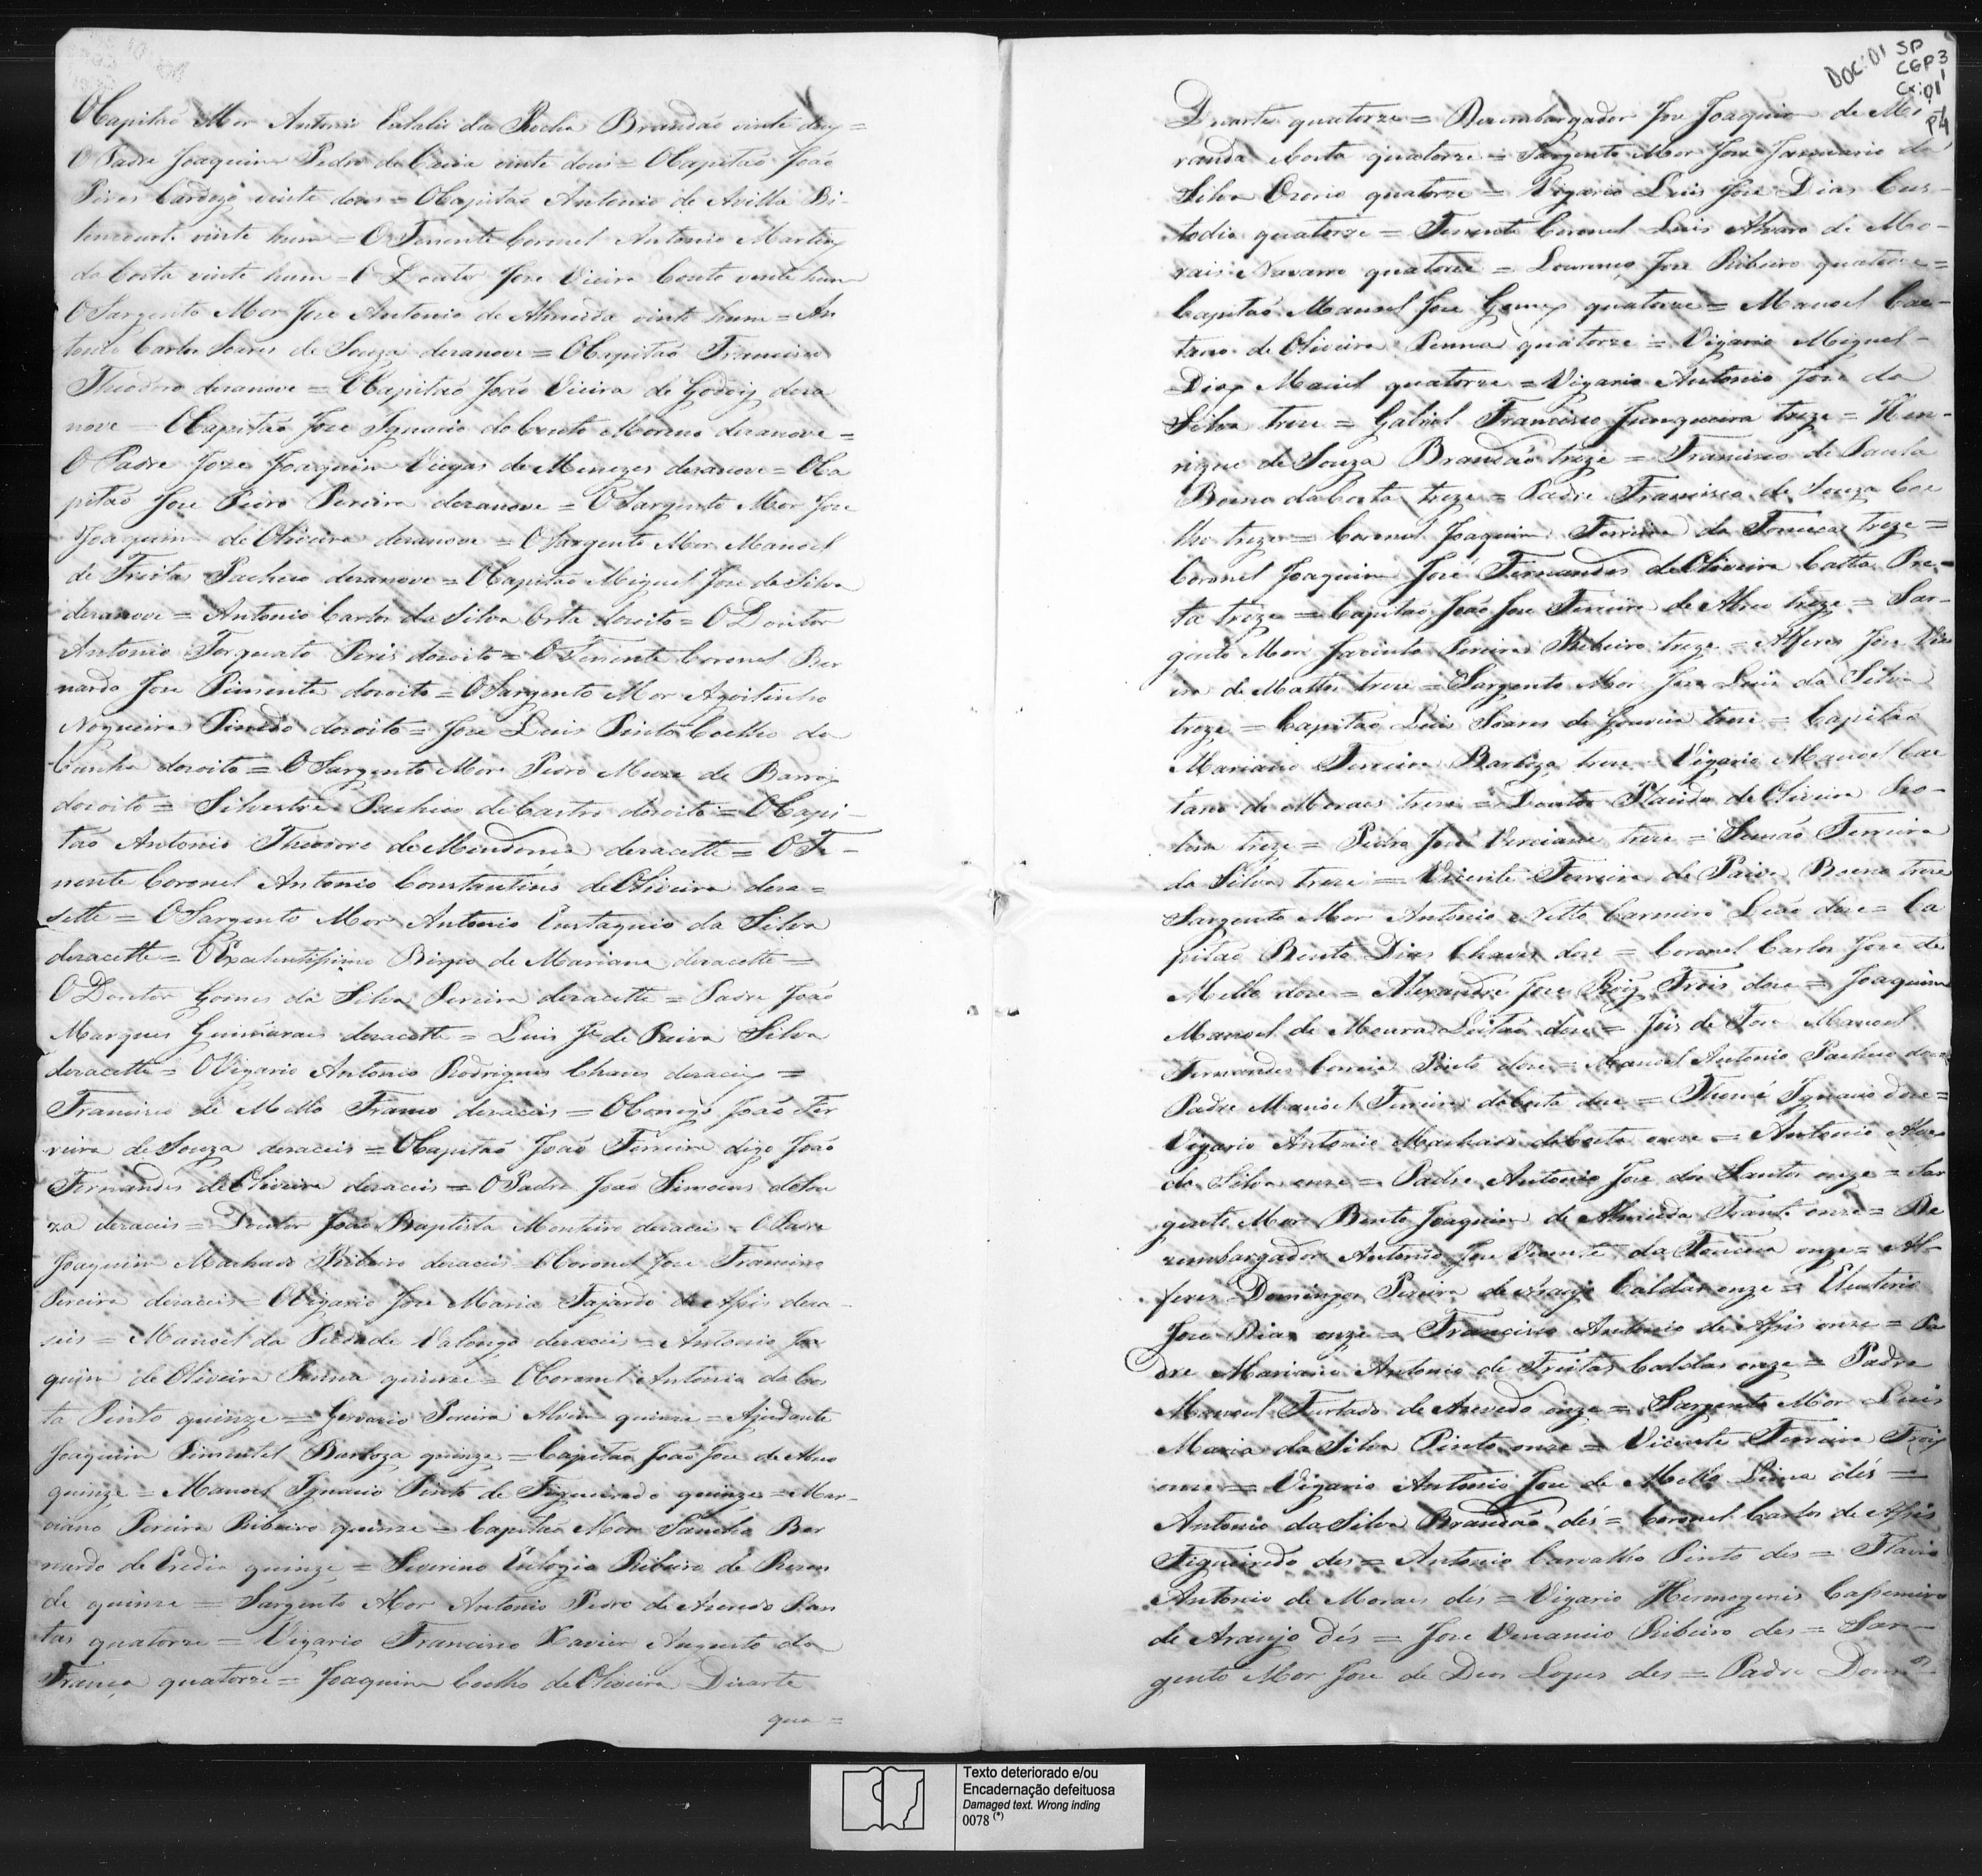 O Capitão Mor Antonio Eulalio da Rocha Brandão vinte dous =
O Padre Joaquim Pedro da Caira vinte dous = O Capitão João
Pires Cardozo vinte dous = O Capitão Antonio de Avilla Bi-
tincourt vinte hum = O Tenente Coronel Antonio Martins
da Costa vinte hum = O Doutor Joze Vieira Couto vinte hum
O Sargento Mor Joze Antonio de Almeida vinte hum = An
tonio Carlos Soares de Souza dezanove = O Capitão Francisco
Theodoro dezanove = O Capitão João Vieira de Godoiz deza
nove = O Capitão Joze Ignacio do Couto Moreno dezanove =
O Padre Joze Joaquim Viegas de Menezes dezanove = O Ca
pitão Joze Pedro Pereira dezanove = O Sargento Mor Joze
Joaquim de Oliveira dezanove = O Sargento Mor Manoel
de Freitas Pacheco dezanove = O Capitão Miguel Joze da Silva
dezanove = Antonio Carlos da Silva Orta dezoito = O Doutor
Antonio Torquato Peris dezoito = O Tenente Coronel Ber
nardo Joze Pimenta dezoito = O Sargento Mor Agoitinho
Nogueira Penedo dezoito = Joze Luis Pinto Coelho da
Cunha dezoito = O Sargento Mor Pedro Muze de Barros
dezoito = Silvestre Pacheco de Castro dezoito = O Capi-
tão Antonio Theodoro de Mendonça dezacette = O Te-
nente Coronel Antonio Constantino de Oliveira deza=
sette = O Sargento Mor Antonio Eustaquio da Silva
dezacette = O Excelentissimo Bispo de Mariana dezacette =
O Doutor Gomes da Silva Pereira dezacette = Padre João
Marques Guimaraes dezacette = Luis Je de Paiva Silva
dezacette = O Vigario Antonio Rodrigues Chaves dezaceis =
Francisco de Mello Franco dezaceis = O Conego João Fer
reira de Souza dezaceis = O Capitão João Ferreira digo João
Fernandes de Oliveira dezaceis = O Padre João Simoens de Sou
za dezaceis = Doutor João Baptista Monteiro dezaceis = O Padre
Joaquim Machado Ribeiro dezaceis = O Coronel Joze Francisco
Pereira dezaceis = O Vigario Joze Maria Fajardo de Assis deza-
seis = Manoel da Piedade Valongo dezaceis = Antonio Joa
quim de Oliveira Penna quinze = O Coronel Antonio da Cos
ta Pinto quinze = Gervazio Pereira Alvim quinze = Ajudante
Joaquim Pimentel Barboza quinze = Capitão João Joze de Abreo
quinze = Manoel Ignacio Pinto de Figueiredo quinze = Mar-
ciano Pereira Ribeiro quinze = Capitão Mor Sancho Ber
nardo de Eredia quinze = Severino Eulogio Ribeiro de Rezen
de quinze = Sargento Mor Antonio Pedro de Azeredo Dan
tas quatorze = Vigario Francisco Xavier Augusto da
França quatorze = Joaquim Coelho de Oliveira Duarte
qua =
DOC:01 SP
CGP3
Cx:01
P4
Duarte quatorze = Dezembargador Joze Joaquim de Mi-
randa Costa quatorze = Sargento Mor Joze Januario da
Silva Ozorio quatorze = Vigario Luis Joze Dias Cus-
todio quatorze = Tenente Coronel Luis Alvaro de Mo-
raes Navarro quatorze = Lourenço Joze Ribeiro quatorze =
Capitão Manoel Joze Gomes quatorze = Manoel Cae-
tano de Oliveira Penna quatorze = Vigario Miguel
Dias Maciel quatorze = Vigario Antonio Joze da
Silva treze = Gabriel Francisco Junqueira treze = Hen-
rique de Souza Brandão treze = Francisco de Paula
Bueno da Costa treze = Padre Francisco de Souza Coe
lho treze = Coronel Joaquim Ferreira da Fonceca treze =
Coronel Joaquim Joze Fernandes de Oliveira Catta Pre-
ta treze = Capitão João Joze Ferreira de Abreu treze = Sar-
gento Mor Jacinto Pereira Ribeiro treze = Alferes Joze Viei
ra de Mattos treze = Sargento Mor Joze Luis da Silva
treze = Capitão Luis Soares de Gouveia treze = Capitão
Mariano Ferreira Barboza treze = Vigario Manoel Cae
tano de Moraes treze = Doutor Placido de Oliveira Ro-
lim treze = Pedro Joze Versiane treze = Simão Ferreira
da Silva treze = Vicente Ferreira de Paiva Bueno treze
Sargento Mor Antonio Netto Carneiro Leão doze = Ca
pitão Bento Dias Chaves doze = Coronel Carlos Joze de
Mello doze = Alexandre Joze Roiz Frois doze = Joaquim
Manoel de Moura Leitão doze = Juis de Fora Manoel
Fernandes Correia Pinto doze = Manoel Antonio Pacheco doze
Padre Manoel Ferreira da Costa doze = Thomé Ignacio doze =
Vigario Antonio Machado da Costa onze = Antonio Alves
da Silva onze = Padre Antonio Joze dos Santos onze = Sar
gento Mor Bento Joaquim de Almeida onze = De
zembargador Antonio Joze Vicente da Fonceca onze = Al-
feres Domingos Pereira de Araujo Caldas onze = Eleuterio
Joze Dias onze = Francisco Antonio de Assis onze = Pa
dre Mariano Antonio de Freitas Caldas onze = Padre
Manoel Furtado de Azevedo onze = Sargento Mor Luis
Maria da Silva Pinto onze = Vicente Ferreira Frois
onze = Vigario Antonio Joze de Mello Lima dés =
Antonio da Silva Brandão dés = Coronel Carlos de Assis
Figueiredo des = Antonio Carvalho Pinto des = Flavio
Antonio de Moraes dés = Vigario Hermogenis Cassemiro
de Araujo dés = Joze Venancio Ribeiro des = Sar-
gento Mor Joze de Deos Lopes des = Padre Domos
Texto deteriorado e/ou
Encadernação defeituosa
Damaged text. Wrong inding
0078 (*)